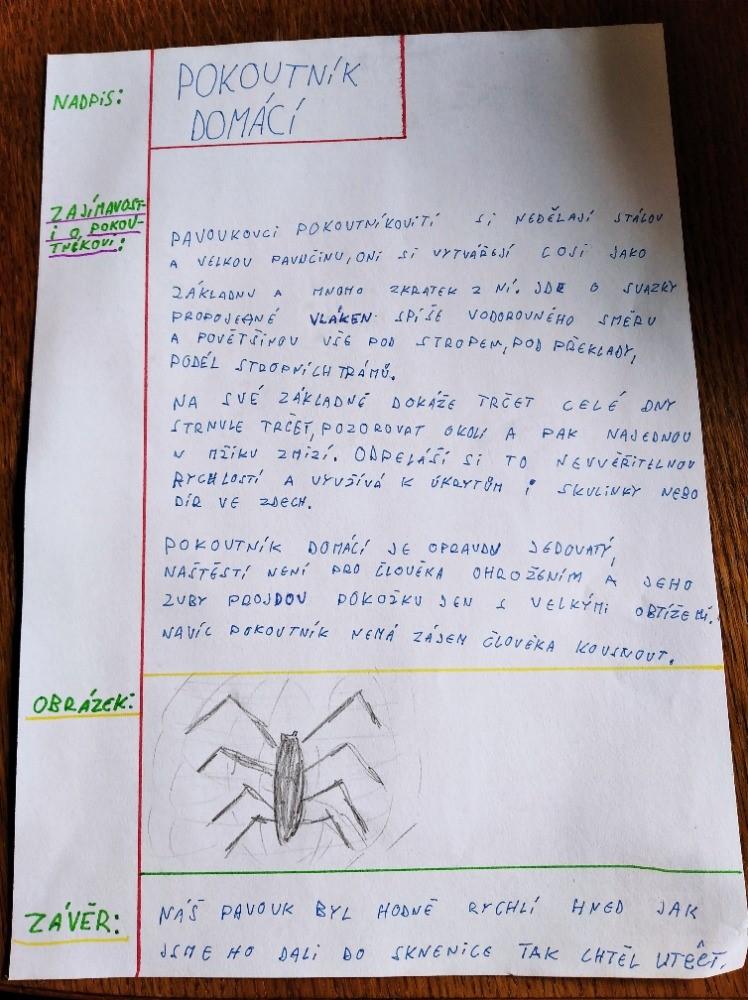 NADPIS:
POKOUTNÍK
DOMÁCÍ
ZAJÍMAVOST-
I O POKOU-
TNÉKOVI:
PAVOUKOVCI POKOUTNÍKOVITÍ SI NEDĚLAJÍ STÁLOU
A VELKOU PAVUČINU, ONI SI VYTVÁŘEJÍ COSI JAKO
ZÁKLADNU A MNOHO ZKRATEK Z NÍ. JDE O SVAZKY
PROPOJENÉ VLÁKEN SPÍŠE VODOROVNÉHO SMĚRU
A POVĚTŠINOU VŠE POD STROPEM, POD PŘEKLADY,
PODÉL STROPNÍCH TRÁMŮ.
NA SVÉ ZÁKLADNĚ DOKÁŽE TRČET CELÉ DNY
STRNULE TRČET, POZOROVAT OKOLÍ A PAK NAJEDNOU
V MŽIKU ZMIZÍ. ODPELÁŠÍ SI TO NEUVĚŘITELNOU
RYCHLOSTÍ A VYUŽÍVÁ K ÚKRYTŮM I SKULINKY NEBO
DÍR VE ZDECH.
POKOUTNÍK DOMÁCÍ JE OPRAVDU JEDOVATÝ,
NAŠTĚSTÍ NENÍ PRO ČLOVĚKA OHROŽENÍM A JEHO
ZUBY PROJDOU POKOŽKU JEN S VELKÝMI OBTÍŽEMI.
NAVÍC POKOUTNÍK NEMÁ ZÁJEM ČLOVĚKA KOUSNOUT.
OBRÁZEK:
ZÁVĚR:
NÁŠ PAVOUK BYL HODNĚ RYCHLÍ HNED JAK
JSME HO DALI DO SKNENICE TAK CHTĚL UTÉCT.